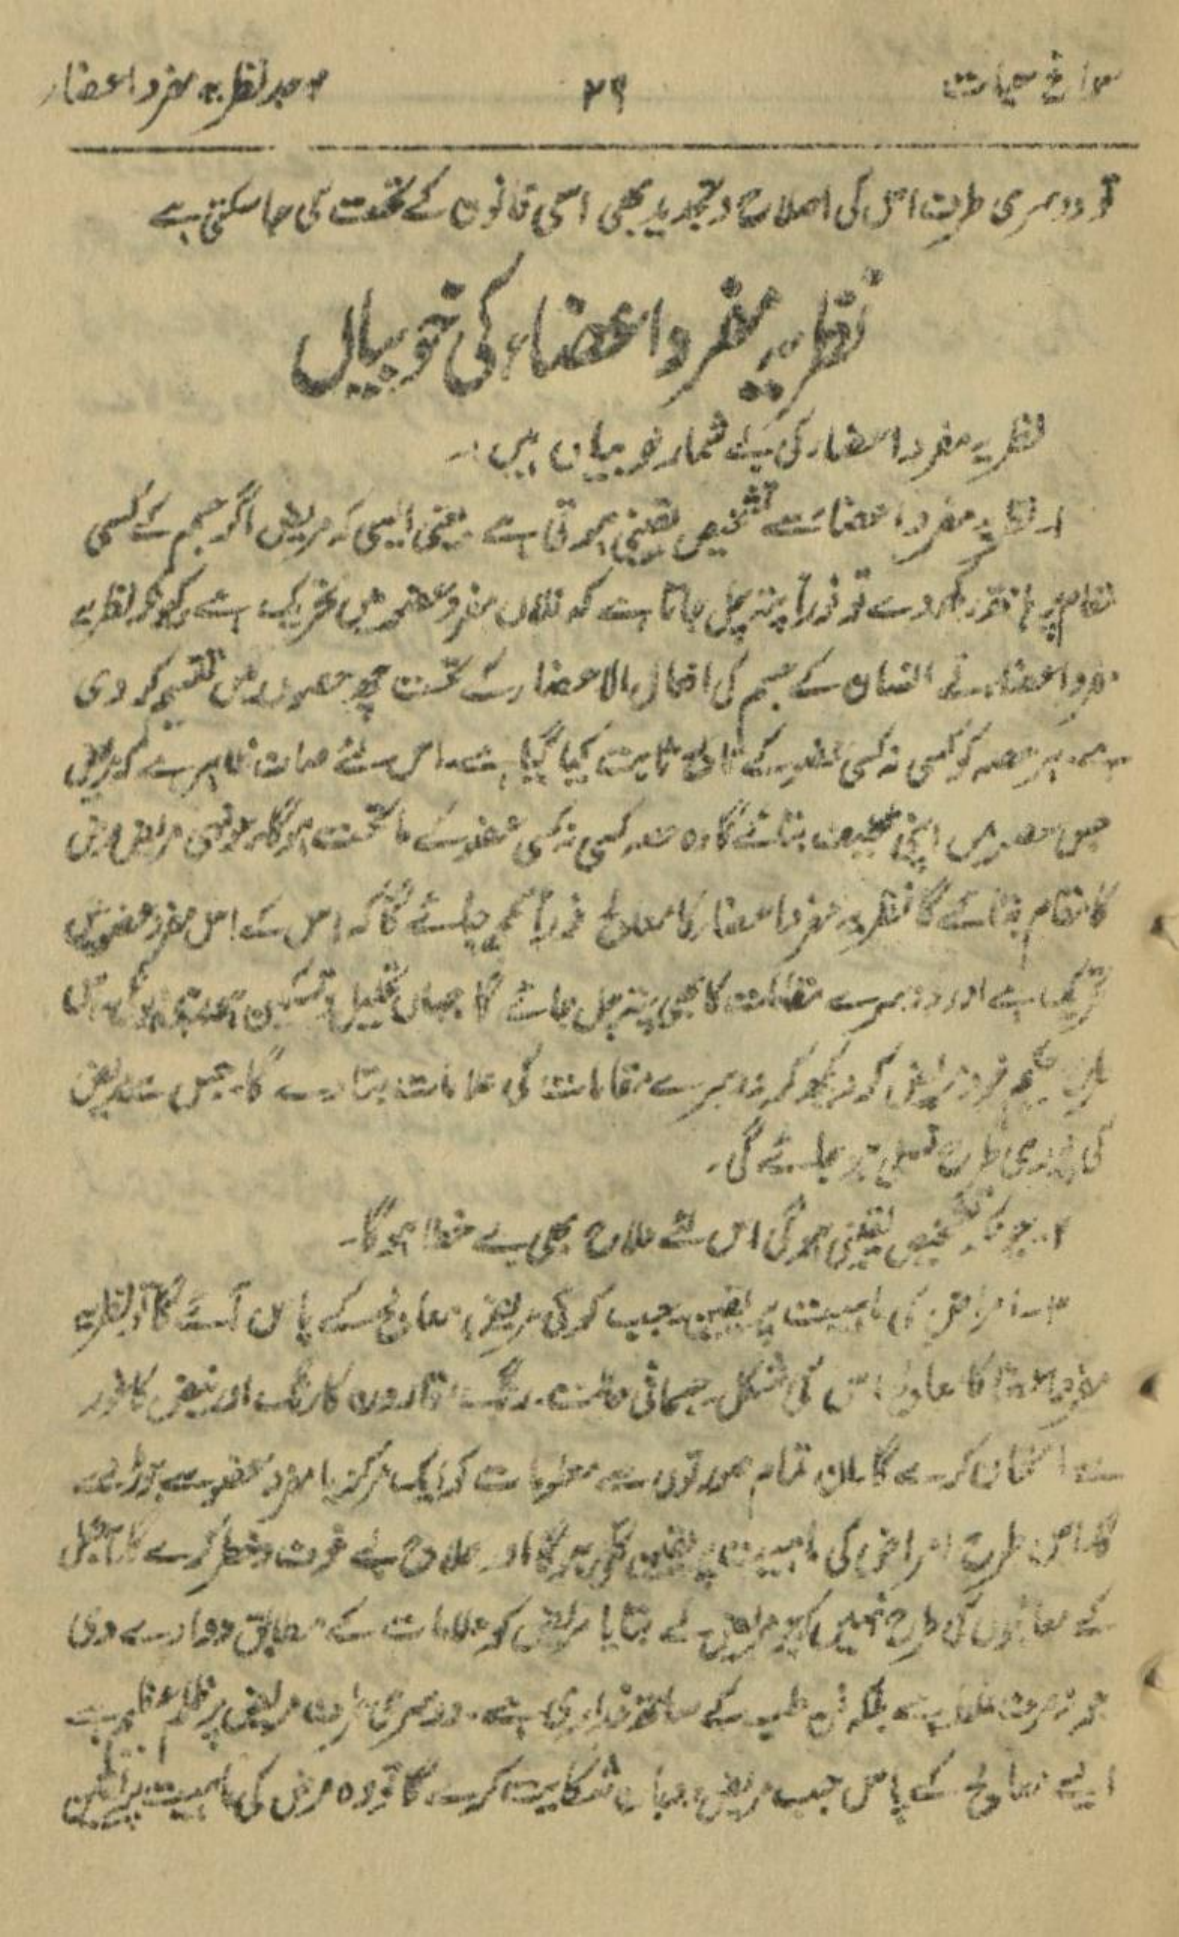 سوانح حیات ۲۹ موجد نظریہ مفرد اعضار
تو دوسری طرف اس کی اصلاح و تجدید بھی اسی قانون کے تحت کی جا سکتی ہے
نظریہ مفرد اعضاء کی خوبیاں
نظریہ مفرد اعضار کی بے شمار خوبیاں ہیں :۔
۱۔ نظریہ مفرد اعضاء سے تشخیص یقینی ہوتی ہے یعنی ایسی کہ مریض اگر جسم کے کسی
مقام پر ہاتھ رکھ دے تو فوراً پتہ چل جاتا ہے کہ فلاں مفرد عضو میں تحریک ہے کیونکہ نظریہ
مفرد اعضاء نے انسان کے جسم کی افعال الاعضار کے تحت چھ حصوں میں تقسیم کر دی
ہے۔ ہر حصہ کو کسی نہ کسی عضو کے تابع ثابت کیا گیا ہے۔ اس لئے صاف ظاہر ہے کہ مریض
جس حصہ میں اپنی تکلیف بتائے گا وہ حصہ کسی نہ کسی عضو کے ماتحت ہو گا۔ جونہی مریض مرض
کا مقام بتائے گا نظریہ مفرد اعضار کا معالج فوراً سمجھ جائے گا کہ اس کے اس مفرد عضو میں
تحریک ہے اور دوسرے مقامات کا بھی پتہ چل جائے گا جہاں تحلیل و تسکین ہو رہی ہوگی۔ اس
حکیم خود مریض کو دیکھ کر دوسرے مقامات کی علامات بتا دے گا۔ جس سے مریض
کی پوری طرح تسلی ہو جائے گی۔
۲۔ چونکہ تشخیص یقینی ہوگی اس لئے علاج بھی بے خطا ہوگا۔
۳۔ امراض کی ماہیت پر یقین۔ جب کوئی مریض معالج کے پاس آئے گا تو نظریہ
مفرد اعضا کا معالج اس کی شکل۔ جسمانی حالت۔ رنگ۔ قارورہ کا رنگ اور نبض کا غور
سے امتحان کرے گا۔ ان تمام صورتوں سے معلومات کو ایک مرکز یا مفرد عضو سے جوڑ دے
گا۔ اس طرح امراض کی ماہیت پر یقین ہوگا اور علاج بے خوف و خطر کرے گا۔ آجکل
کے معالجوں کی طرح نہیں کہ جو مریض نے بتایا مریض کو علامات کے مطابق دوا دے دی
جو نہ صرف غلط ہے بلکہ فن طب کے ساتھ غداری ہے۔ دوسری طرف مریض پر ظلم عظیم ہے
ایسے معالج کے پاس جب مریض شکایت کرے گا تو وہ مرض کی ماہیت پر یقین